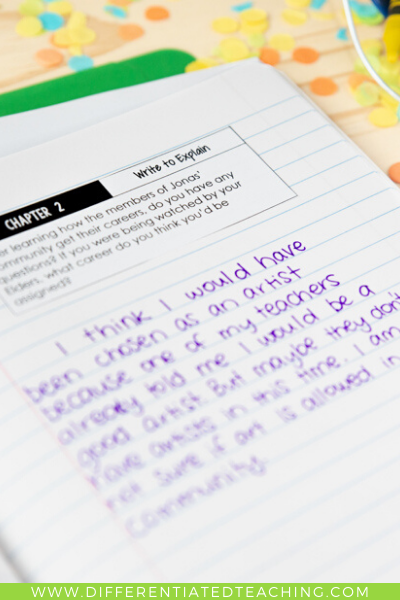 CHAPTER 2
Write to Explain
er learning how the members of Jonas'
ommunity get their careers, do you have any
questions? If you were being watched by your
Elders, what career do you think you'd be
assigned?
I think I would have
been chosen as an artist
because one of my teachers
already told me I would be a
good artist But maybe they dont
have artists in this time. I am
not sure if art is allowed in
community.
WWW.DIFFERENTIATEDTEACHING.COM